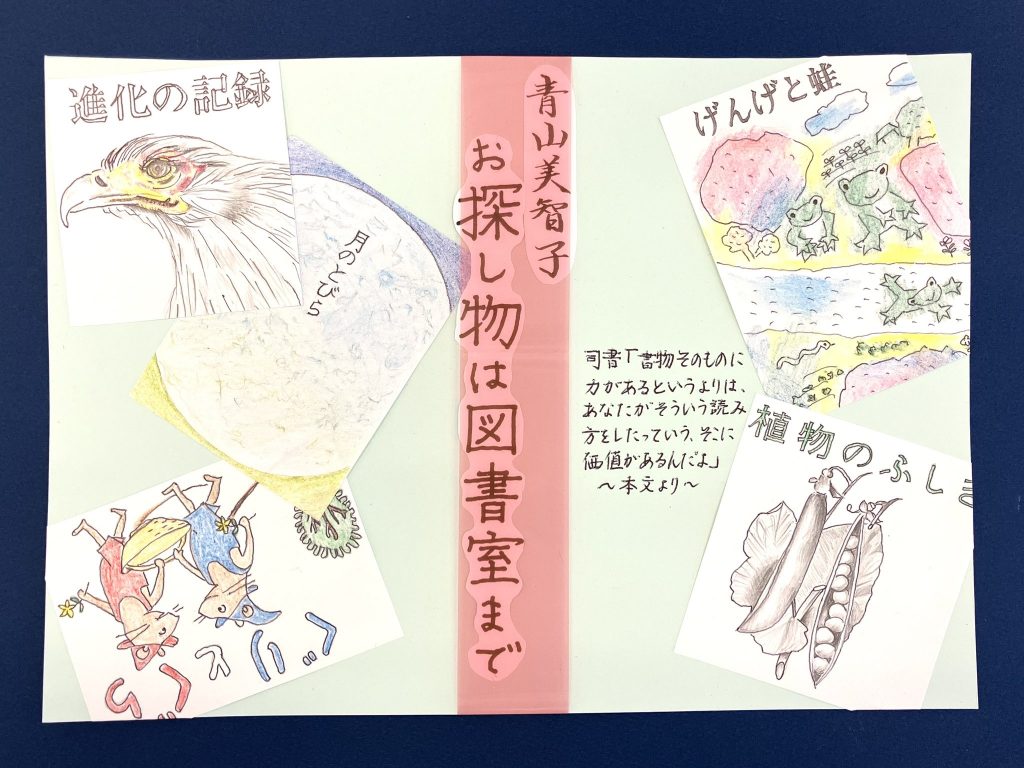 進化の記録
月のとびら
ぐりとぐら
青山美智子
お探し物は図書室まで
げんげと蛙
司書「書物そのものに
力があるというよりは、
あなたがそういう読み
方をしたっていう、そこに
価値があるんだよ」
～本文より～
植物のふしぎ